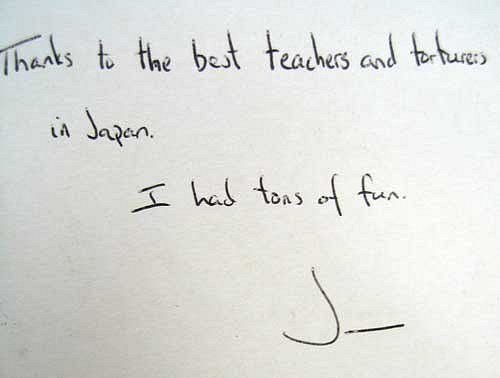 Thanks to the best teachers and torturers
in Japan.
I had tons of fun.
J